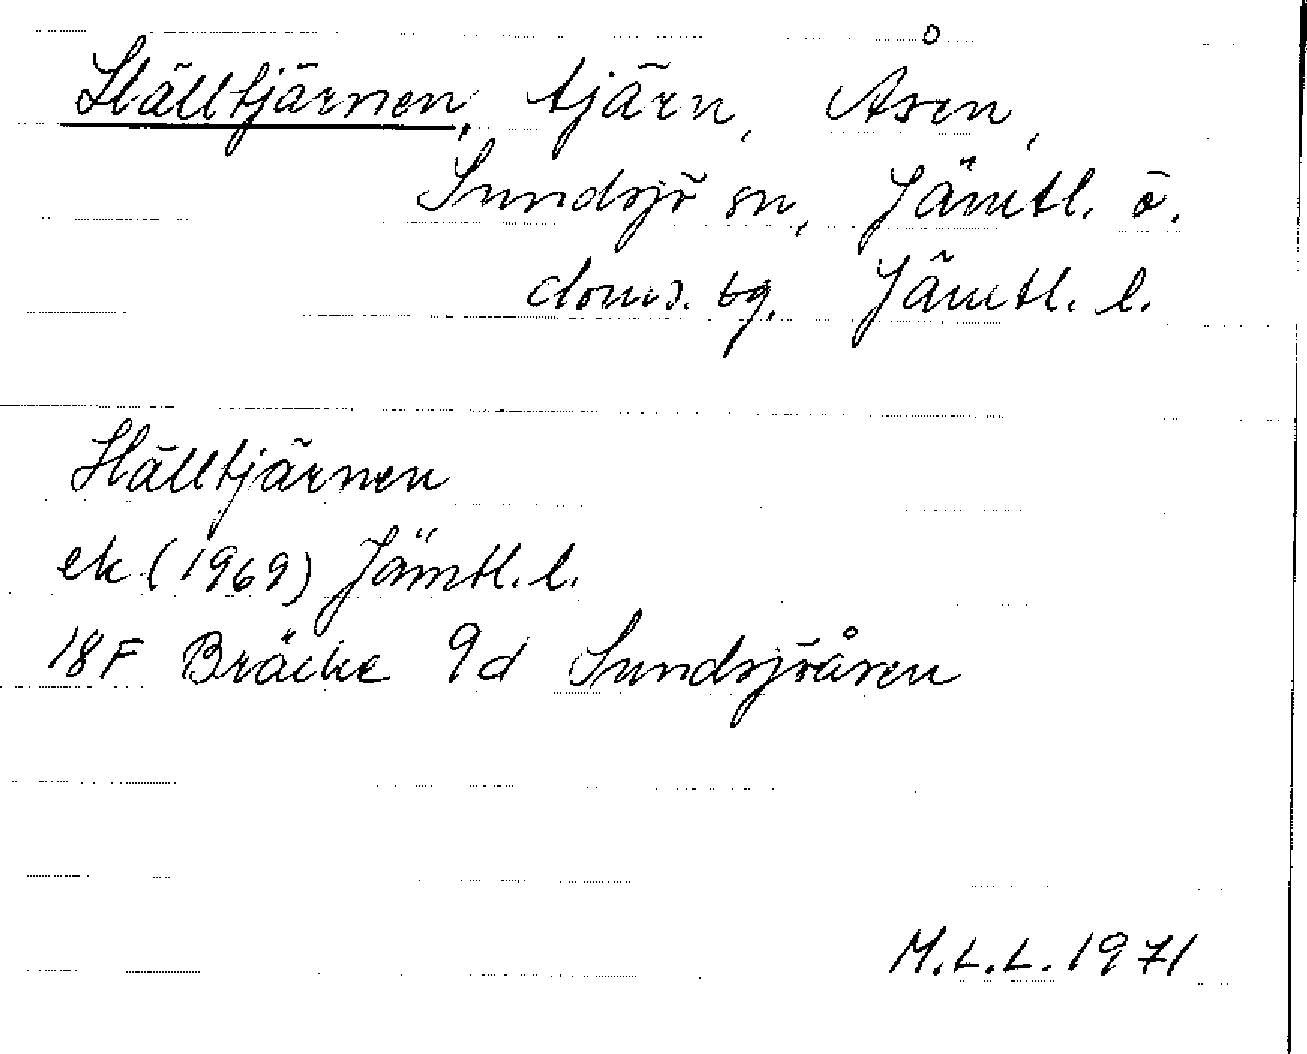 Hälltjärnen, tjärn, Åsen,
Sundsjö sn, Jämtl. ö.
doms. tg. Jämtl. l.
Hälltjärnen
ek (1969) Jämtl. l.
18F Bräcke 9d Sundsjöåsen
M.L.L. 1971